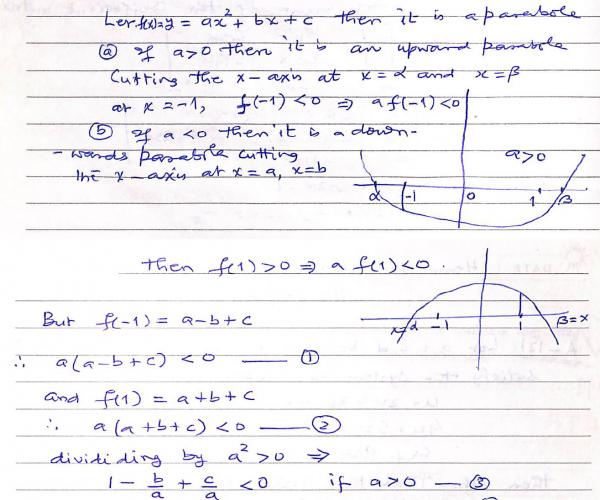 Let f(x)=y = ax² + bx + c then it is a parabola
(a) If a>0 then it is an upward parabola
Cutting the x-axis at x=α and x=β
at x=-1, f(-1) <0 ⇒ a f(-1)<0
(b) If a<0 then it is a down-
-wards parabola cutting
the x-axis at x=a, x=b
a>0
α -1 0 1 β
then f(1)>0 ⇒ a f(1)<0.
But f(-1) = a-b+c
α -1 1 β=x
∴ a(a-b+c) <0 —— (1)
and f(1) = a+b+c
∴ a(a+b+c) <0 —— (2)
divididing by a²>0 ⇒
1 - b/a + c/a <0 if a>0 — (3)